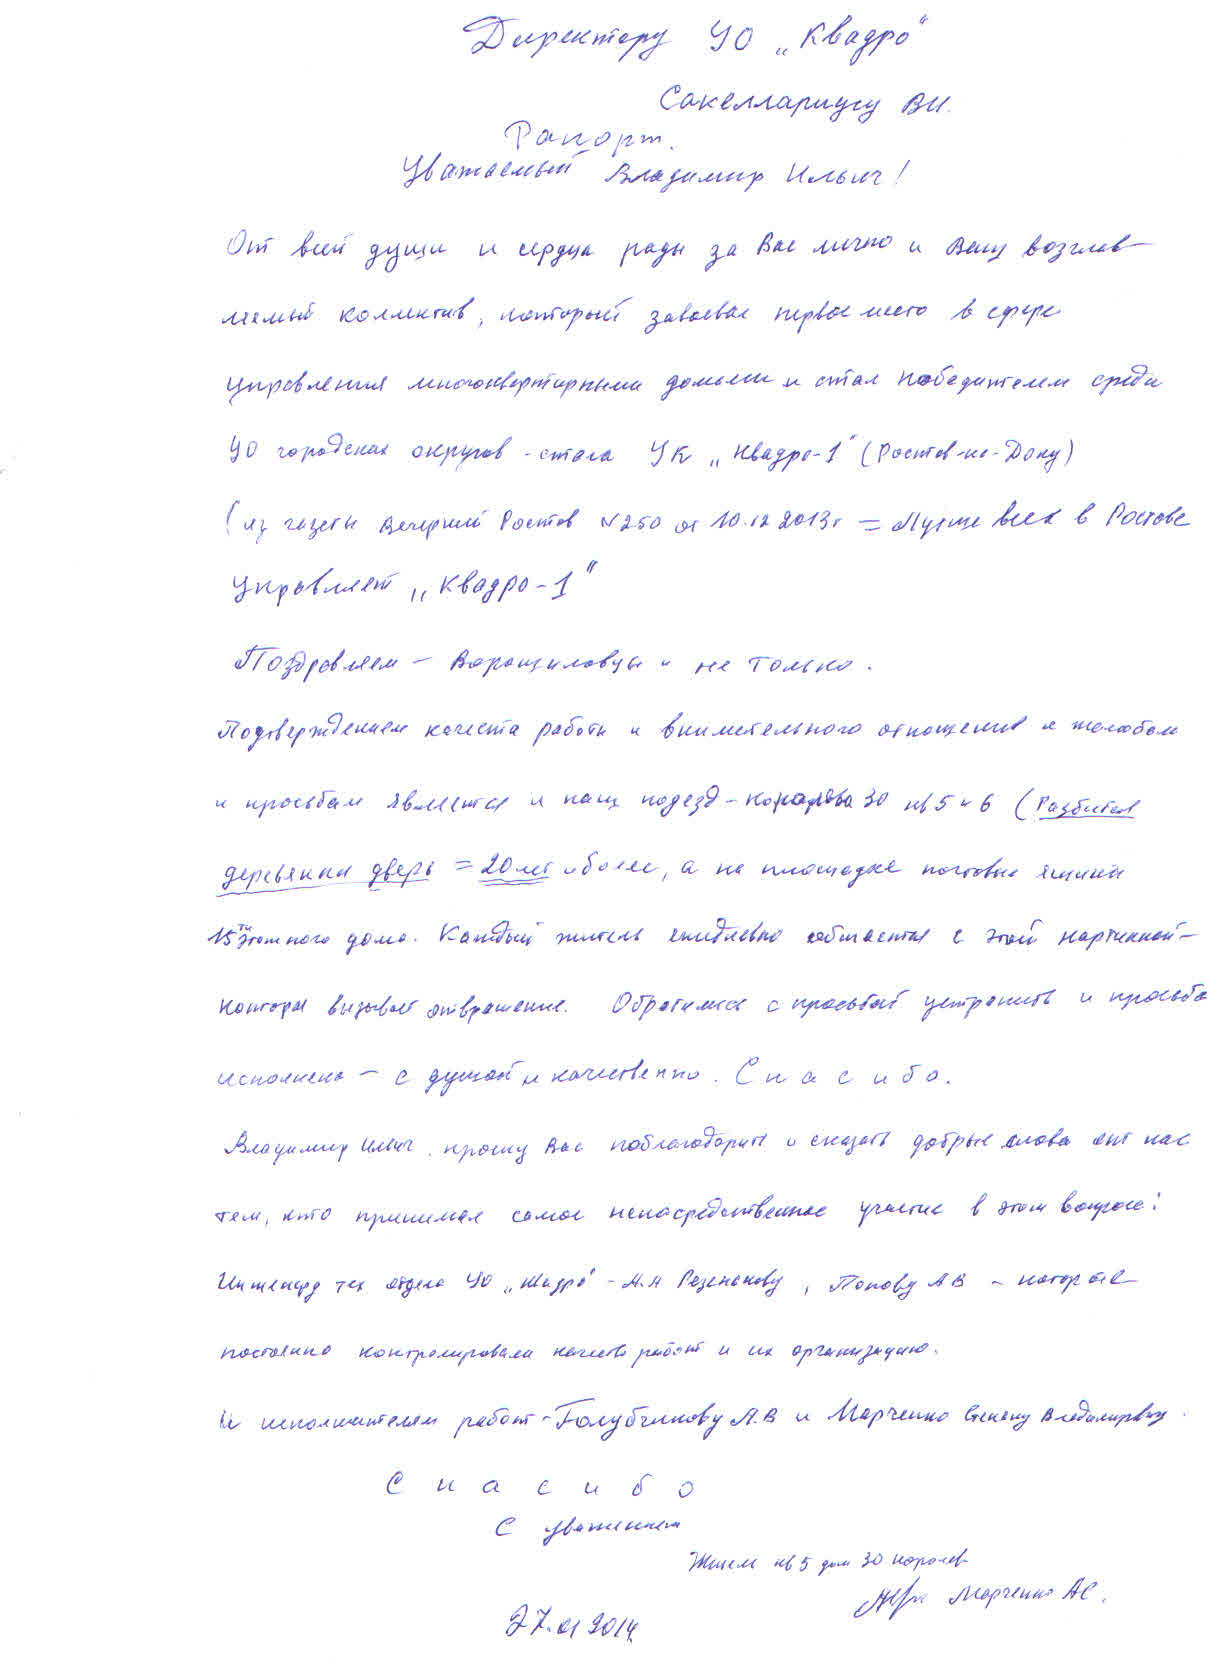 Директору УО "Квадро"
Сакеллариусу ВИ.
Рапорт.
Уважаемый Владимир Ильич!
От всей души и сердца рады за Вас лично и Ваш возглав
ляемый коллектив, который завоевал первое место в сфере
управления многоквартирными домами и стал победителем среди
УО городских округов - стала УК "Квадро-1" (Ростов-на-Дону)
(из газеты Вечерний Ростов N250 от 10.12 2013г = Лучше всех в Ростове
управляет "Квадро-1"
Поздравляем - Ворошиловцы и не только.
Подтверждением качества работы и внимательного отношения к жалобам
и просьбам является и наш подезд - Королёва 30 кв 5 и 6 (Разбитая
деревянная дверь = 20 лет и более, а на площадке почтовые ящики
15ти этажного дома. Каждый житель ежедневно общается с этой картинкой -
которая вызывает отвращение. Обратились с просьбой устранить и просьба
исполнена - с душой и качественно. Спасибо.
Владимир Ильич, прошу Вас поблагодарить и сказать добрые слова от нас
тем, кто принимал самое непосредственное участие в этом вопросе:
Инженеру тех отдела УО - Попову А В - которые
постоянно контролировали качество работ и их организацию.
И исполнителям работ - Голубчикову А.В и Марченко Евгену Владимировичу.
Спасибо
С уважением
кв 5 дом 30 королев
Марченко АС.
27.01 2014